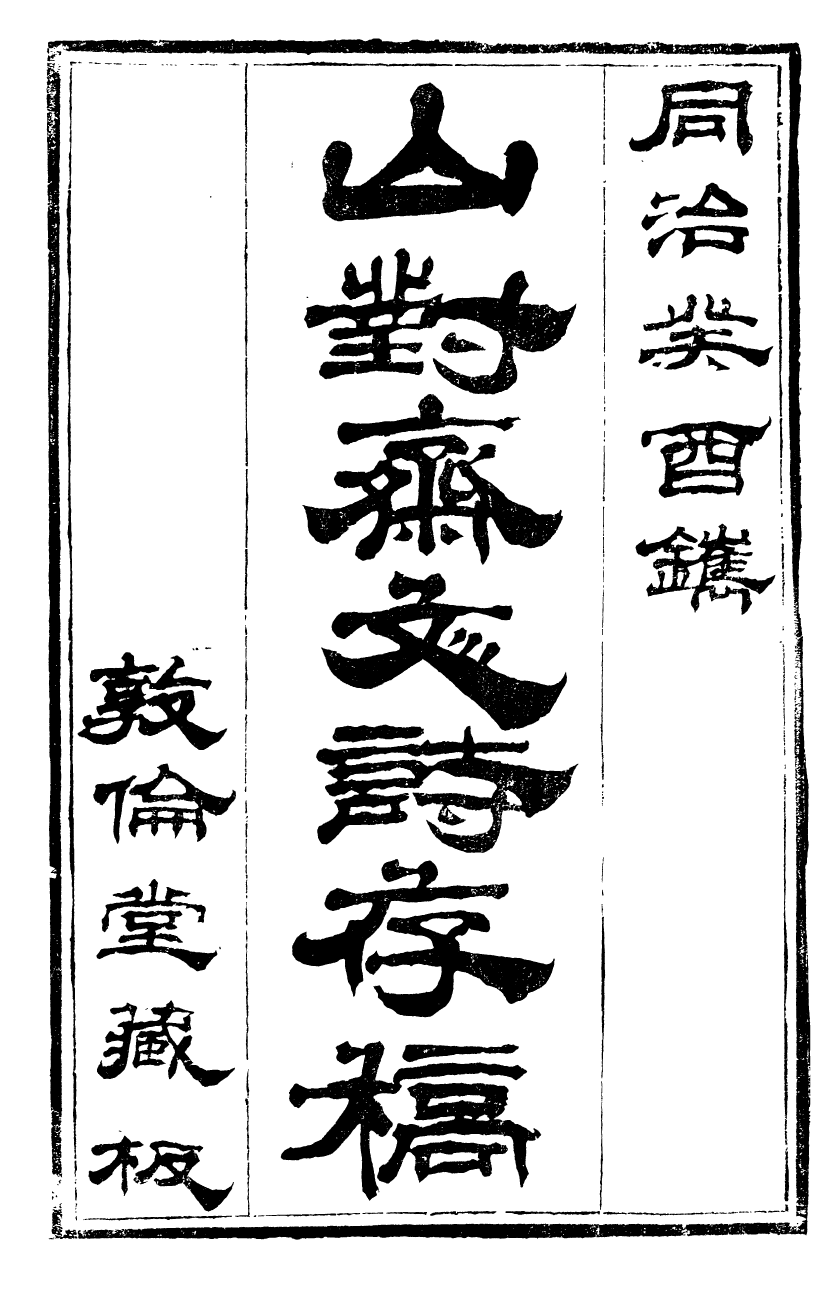 同治癸酉鐫
山對齋文詩存稿
敦倫堂藏板